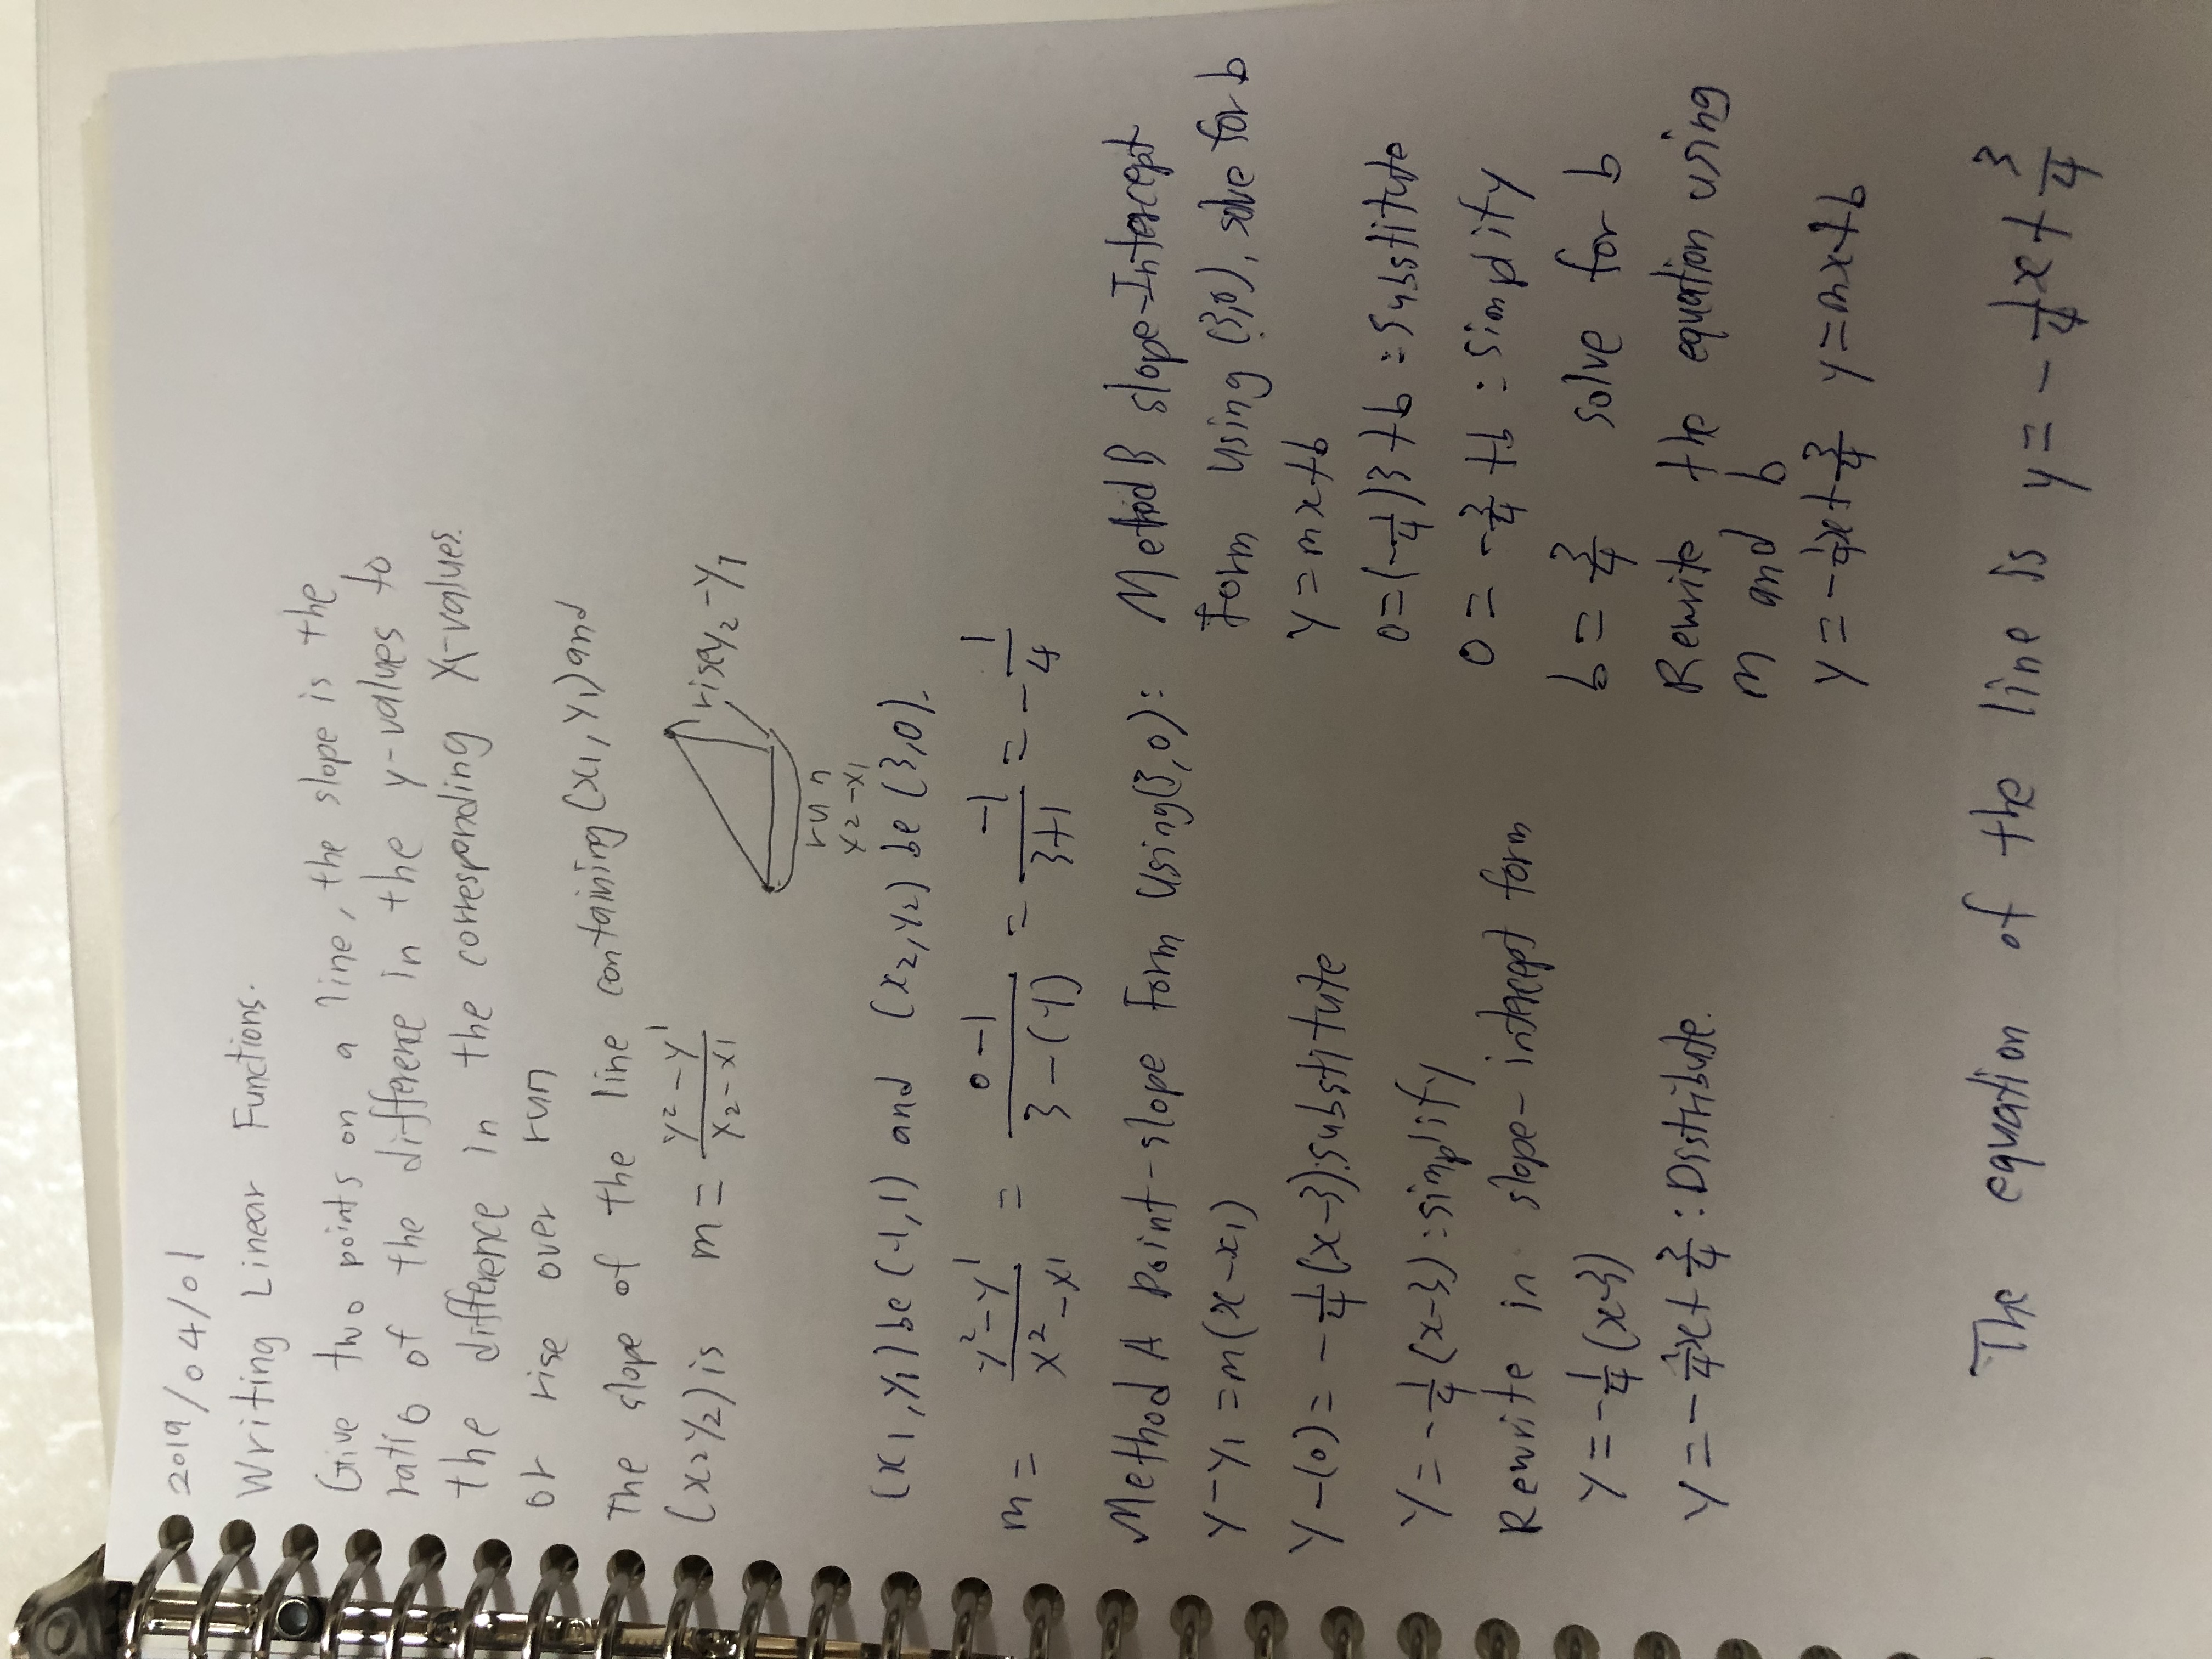 2019/04/01
Writing Linear Functions.
Give two points on a line, the slope is the
ratio of the difference in the y-values to
the difference in the corresponding x-values.
or rise over run
The slope of the line containing (x1, y1) and
(x2 y2) is m = y2-y1/x2-x1
rise y2-y1
run
x2-x1
(x1, y1) be (-1, 1) and (x2, y2) be (3, 0).
m = y2-y1/x2-x1 = 0-1/3-(-1) = -1/3+1 = -1/4
Method A Point-slope Form Using (3, 0):
y-y1 = m(x-x1)
y-(0) = -1/4(x-3):substitute
y = -1/4(x-3):simplify
Rewrite in slope-intercept form
y = -1/4(x-3)
y = -1/4x+3/4:Disstribute.
Metod B slope-Intercept
Form using (3,0), solve for b
y = mx+b
0=(-1/4)3+b:susstitute
0 = -3/4+b:simplify
b = 3/4 solve for b
Rewrite the equation using
m and b
y = -1/4x+3/4 y=mx+b
The equation of the line is y = -1/4x+3/4